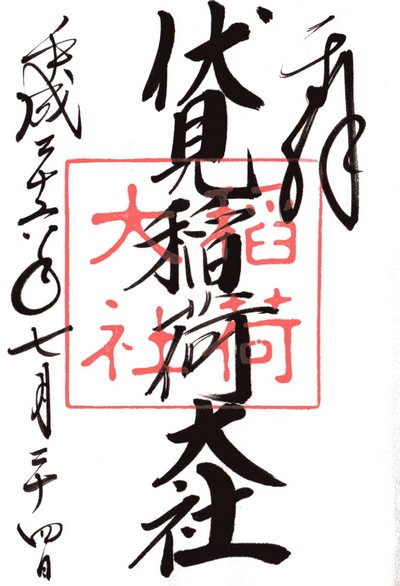 拝
伏見稲荷大社
平成二十六年七月二十四日
稲荷
大社